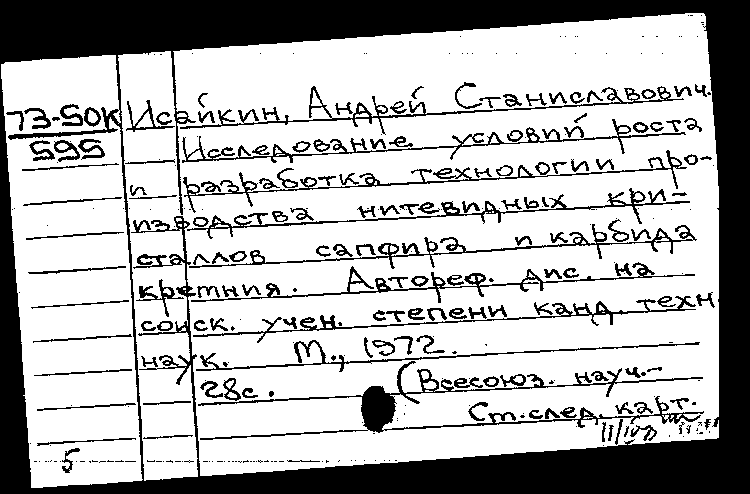 73-50к Исайкин, Андрей Станиславович.
595 Исследование условий роста
и разработка технологии про-
изводства нитевидных кри-
сталлов сапфира и карбида
кремния. Автореф. дис. на
соиск. учен. степени канд. техн.
наук. М., 1972.
28с. (Всесоюз. науч.-
Ст. след. карт.
5